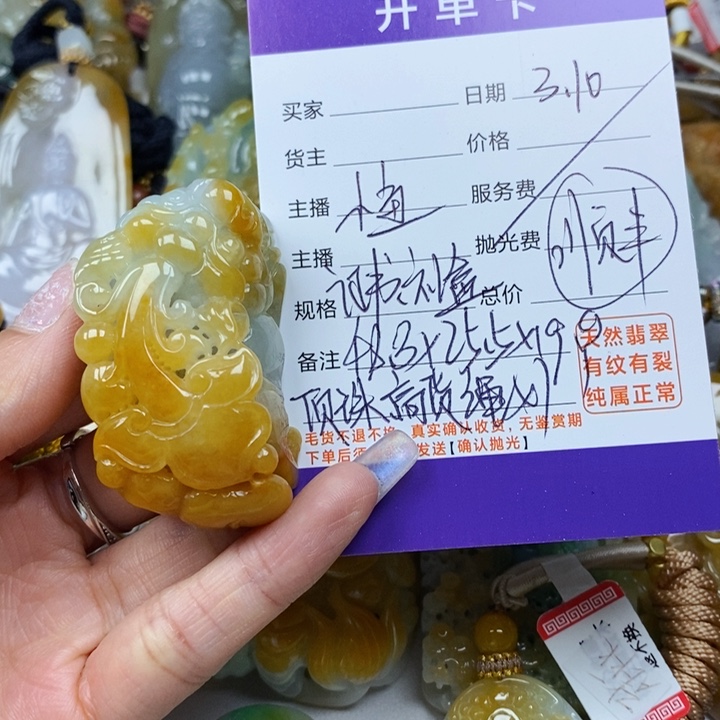 开单卡
买家 日期 3.10
货主 价格
主播 服务费
主播 抛光费 顺丰
规格 证书刘盒 总价
备注 48.3x25.5x9.9
天然翡翠
有纹有裂
纯属正常
毛货不退不换，真实确认收货，无鉴赏期
下单后须 发送【确认抛光】